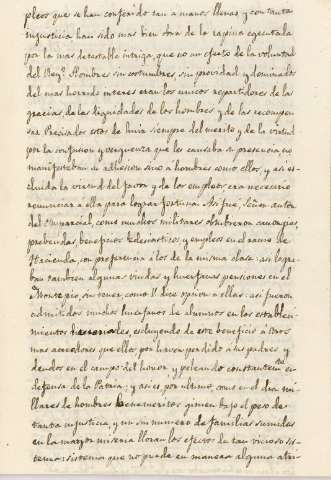 pleos que se han conferido tan a manos llenas y con tanta
injusticia han sido mas bien obra de la rapiña egecutada
por la mas detestable intriga, que no un efecto de la voluntad
del Rey. Hombres sin costumbres, sin probidad y dominados
del mas horrendo interes eran los unicos repartidores de las
gracias, de las dignidades de los hombres y de las recompen
sas. Precisados estos de huir siempre del merito y de la virtud
por la confusion y verguenza que les causaba su presencia, no
manifestaban su adhesion sino a hombres como ellos, y asi es-
cluida la virtud del favor y de los empleos era necesario
renunciar a ella para lograr fortuna. Asi fue, Señor autor
del Imparcial, como muchos militares obtubieron canongias,
prebendas, beneficios eclesiasticos y empleos en el ramo de
Hacienda, con preferencia a los de la misma clase: asi logra-
ban tambien algunas viudas y huerfanas pensiones en el
Monte pio, sin tener, como V. dice opcion a ellas: asi fueron
admitidos muchos huerfanos de alumnos en los estableci-
mientos, escluyendo de este beneficio á otros
mas acreedores que ellos por haver perdido a sus padres y
deudos en el campo del honor y peleando constantemte en
defensa de la Patria: y asi es por ultimo, como en el dia mi-
llares de hombres benemeritos gimen bajo el peso de
tanta injusticia, y un sin numero de familias sumidas
en la mayor miseria lloran los efectos de tan vicioso sis-
tema: sistema que no puede en manera alguna atri-